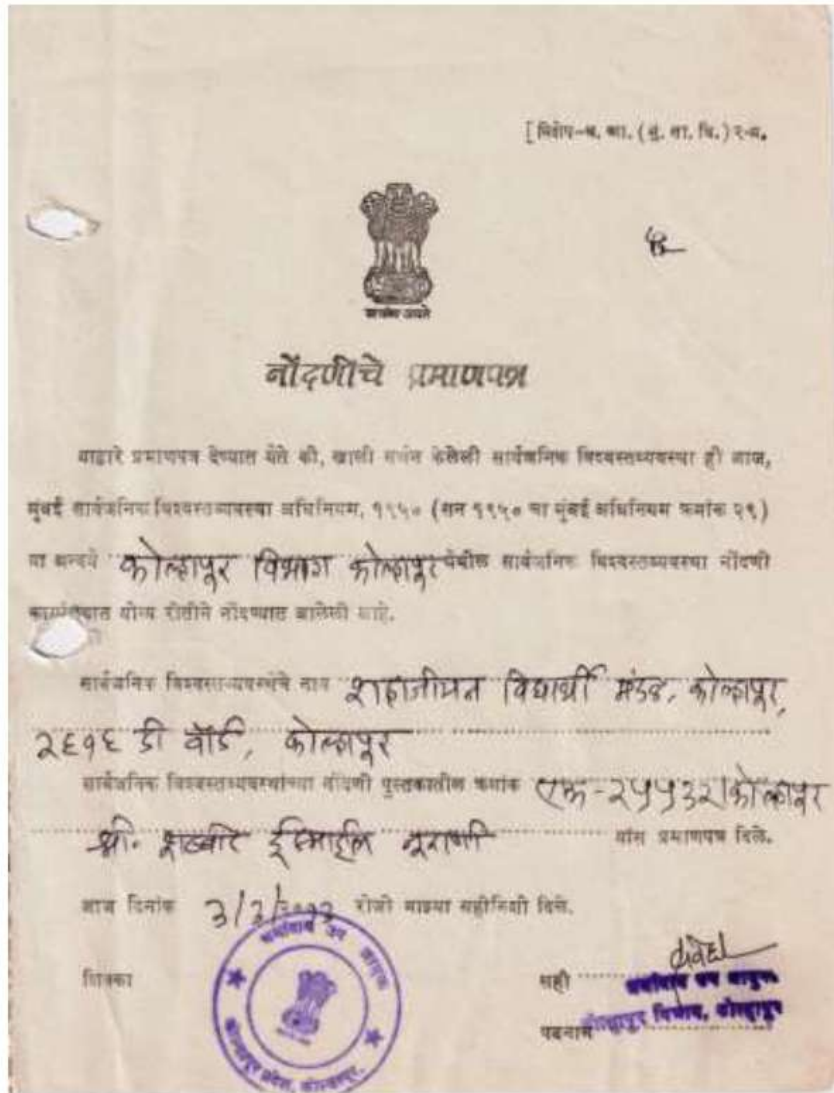 [विशेष-ध. आ. (मुं. सा. वि.) २-म.
सत्यमेव जयते
नोंदणीचे प्रमाणपत्र
याद्वारे प्रमाणपत्र देण्यात येते की, खाली वर्णन केलेली सार्वजनिक विश्वस्तव्यवस्था ही आज,
मुंबई सार्वजनिक विश्वस्तव्यवस्था अधिनियम, १९५० (सन १९५० चा मुंबई अधिनियम क्रमांक २९)
या अन्वये कोल्हापूर विभाग कोल्हापूर येथील सार्वजनिक विश्वस्तव्यवस्था नोंदणी
कार्यालयात योग्य रीतीने नोंदण्यात आलेली आहे.
सार्वजनिक विश्वस्तव्यवस्थेचे नाव विद्यार्थी मंडळ, कोल्हापूर,
२६१६ डी वॉर्ड, कोल्हापूर
सार्वजनिक विश्वस्तव्यवस्थांच्या नोंदणी पुस्तकातील क्रमांक एफ-२५५३२/कोल्हापूर
श्री. इस्माईल यांस प्रमाणपत्र दिले.
आज दिनांक रोजी माझ्या सहीनिशी दिले.
शिक्का
सही
धर्मादाय उप आयुक्त
कोल्हापूर विभाग, कोल्हापूर
पदनाम
धर्मादाय उप आयुक्त
कोल्हापूर प्रदेश, कोल्हापूर.